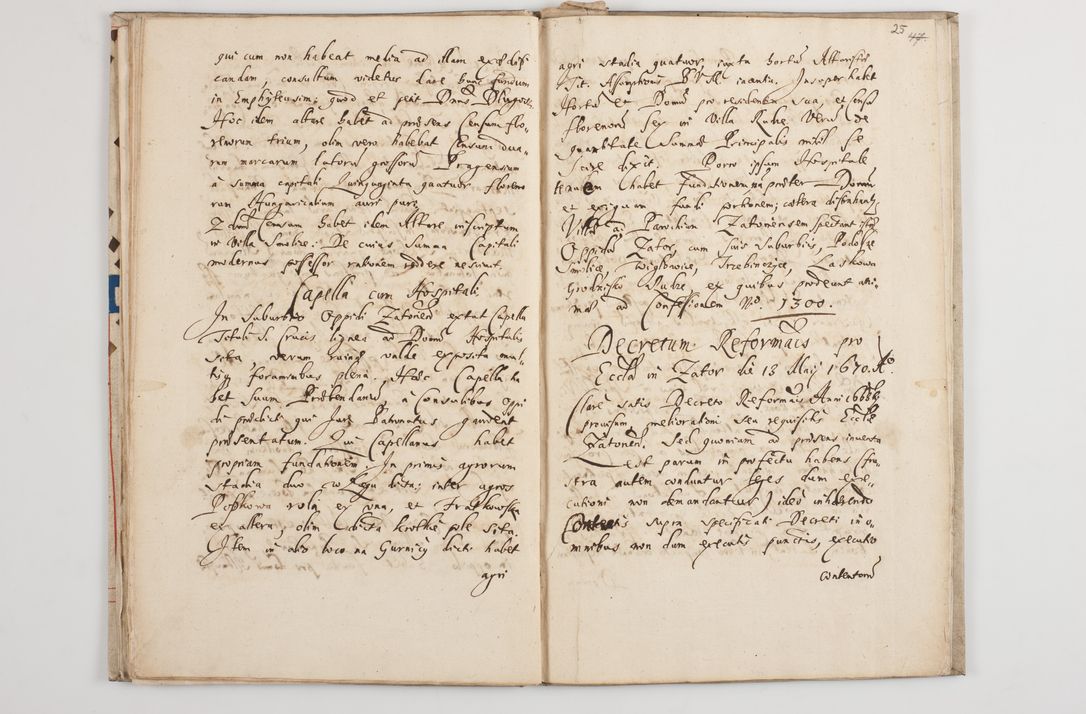 qui cum non habeat media ad illam exædifi
candam, consultum videtur dare hunc fundum
in Emphyteusim; quod et petit Dnus
Hoc idem altare habet ad præsens Censum flo-
renorum trium, olim vero habebat Censum dua-
rum marcarum latorum grossorum Pragensium
à summa capitali Quinquaginta quatuor floreno
rum Hungaricalium auri puri
Censum habet idem Altare inscriptum
in Villa Smolice. De cuius Summa Capitali
modernus possessor rationem reddere nescivit.
Capella cum Hospitali
In suburbio Oppidi Zatorien extat Capella
Tituli S. Crucis lignea ad Domum Hospitalis
sita, verum ruinæ valde exposita mul-
tisq foraminibus plena. Hæc Capella ha
bet suum Præbendarium, à Consulibus Oppi
di prædicti qui Jure Patronatus gaudent
præsentatum. Qui Capellanus habet
propriam fundationem. In primis agrorum
stadia duo cw Zegi dicta; inter agros
rolę ex una, et Fratkowską
ex altera, olim dicta krotkie pole sita.
Item in alio loco na Gurnicy dicto habet
agri
25 47.
agri stadia quatuor iuxta hortum Altaristæ
Tit. Assumptionis B.V.M. iacentia. Insuper habet
Hortum et Domum pro residentia sua, et censum
florenorum sex in Villa Rudze. Verum de
quantitate Summæ Principalis nihil se
scire dixit. Porro ipsum Hospitale
habet fundationem præter Domum
et exiguam fundi portionem; cætera
Villæ ad Parochiam Zatoriensem spectant
Oppidum Zator, cum suis suburbiis, Podolze
Smolice, Wiglowice, Trzebinczyce, Laskowa
Grodzisko Rudze ex quibus prodeunt ani-
mæ ad Confessionem No. 1300.
Decretum Reformaõis pro
Eccla in Zator die 13 Maij 1670. Ao.
Clare satis Decreto Reformaõis Anni 1668
provisum, meliorationi seu requisitis Ecclæ
Zatorien. Sed quoniam ad præsens inventa
est parum in profectu habens (fru-
stra autem conduntur leges dum exe-
cutioni non demandantur) ideo inhærendo
Contentis supra specificati Decreti in o-
mnibus non dum executis punctis, executio
contentorum